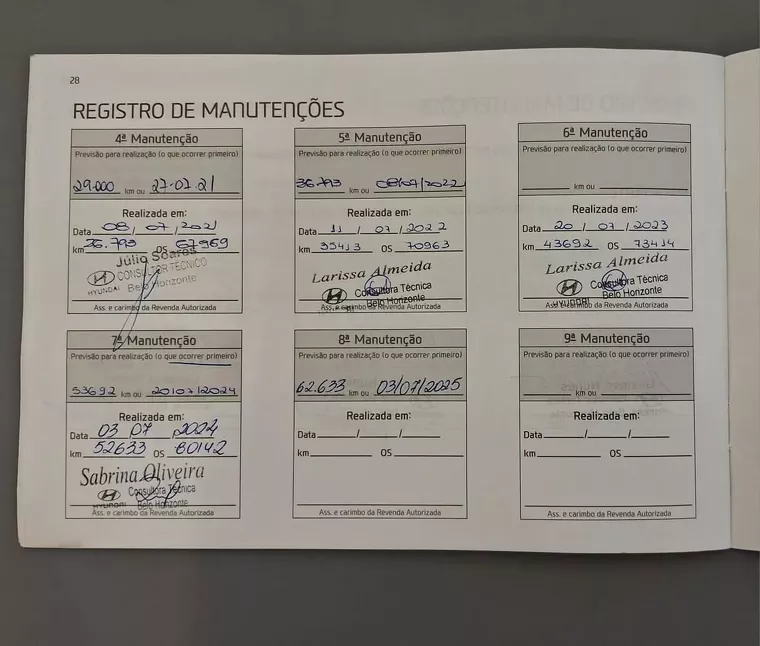 28
REGISTRO DE MANUTENÇÕES
4ª Manutenção
Previsão para realização (o que ocorrer primeiro)
29.000 km ou 27.07.21
Realizada em:
Data 08 / 07 / 2021
km 26.793 OS 67969
Júlio Soares
CONSULTOR TÉCNICO
HYUNDAI Belo Horizonte
Ass. e carimbo da Revenda Autorizada
5ª Manutenção
Previsão para realização (o que ocorrer primeiro)
36.793 km ou 08/07/2022
Realizada em:
Data 11 / 07 / 2022
km 35413 OS 70963
Larissa Almeida
Consultora Técnica
Belo Horizonte
Ass. e carimbo da Revenda Autorizada
6ª Manutenção
Previsão para realização (o que ocorrer primeiro)
km ou
Realizada em:
Data 20 / 07 / 2023
km 43692 OS 73414
Larissa Almeida
Consultora Técnica
HYUNDAI Belo Horizonte
Ass. e carimbo da Revenda Autorizada
7ª Manutenção
Previsão para realização (o que ocorrer primeiro)
53692 km ou 20107/2024
Realizada em:
Data 03 07 / 2024
km 52633 OS 80142
Sabrina Oliveira
Consultora Técnica
HYUNDAI Belo Horizonte
Ass. e carimbo da Revenda Autorizada
8ª Manutenção
Previsão para realização (o que ocorrer primeiro)
62.633 km ou 03/07/2025
Realizada em:
Data / /
km OS
Ass. e carimbo da Revenda Autorizada
9ª Manutenção
Previsão para realização (o que ocorrer primeiro)
km ou
Realizada em:
Data / /
km OS
Ass. e carimbo da Revenda Autorizada